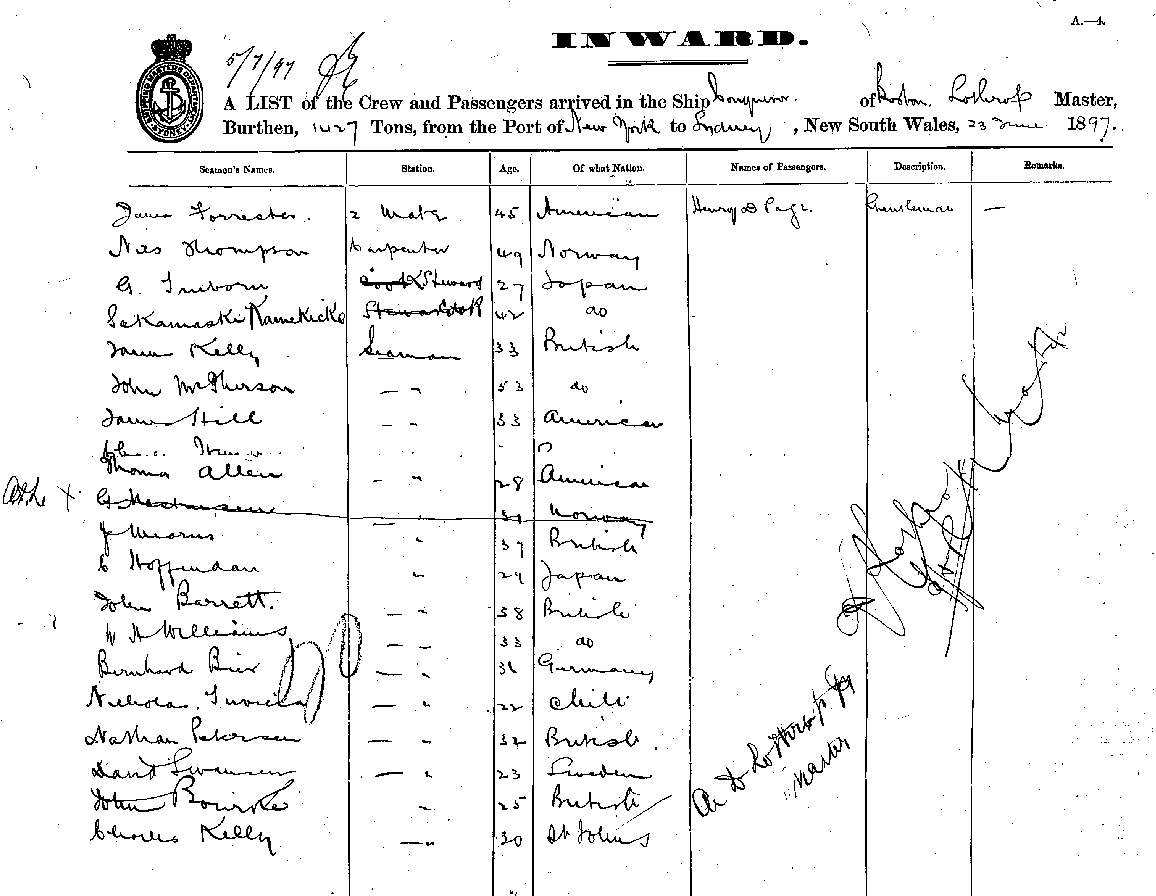 A.—4.
INWARD.
5/7/97
A LIST of the Crew and Passengers arrived in the Ship Conqueror. of Boston, Lothrop Master,
Burthen, 1427 Tons, from the Port of New York to Sydney, New South Wales, 23 June 1897.
Seamen's Names. Station. Age. Of what Nation. Names of Passengers. Description. Remarks.
James Forrester. 2 Mate 45 American Henry D Page. Gentleman —
Nils Thompson Carpenter 49 Norway
G. 27 Japan
Sakamaski Kamekicke 42 do
James Kelly Seaman 33 British
John McPherson — " 53 do
James Hill - " 33 American
Thomas Allen - " 28 American
Norway
J Mearns " 37 British
C Hoffendan " 29 Japan
John Barrett. — " 38 British
W H Williams — " 33 do
Bernhard Bier — " 36 Germany
Nicholas — " 22 Chili
Nathan Petersen — " 32 British.
David Swansen — " 23 Sweden
John Bourke " 25 British
Charles Kelly — " 30 St Johns
A D Lothrop Jr
Master